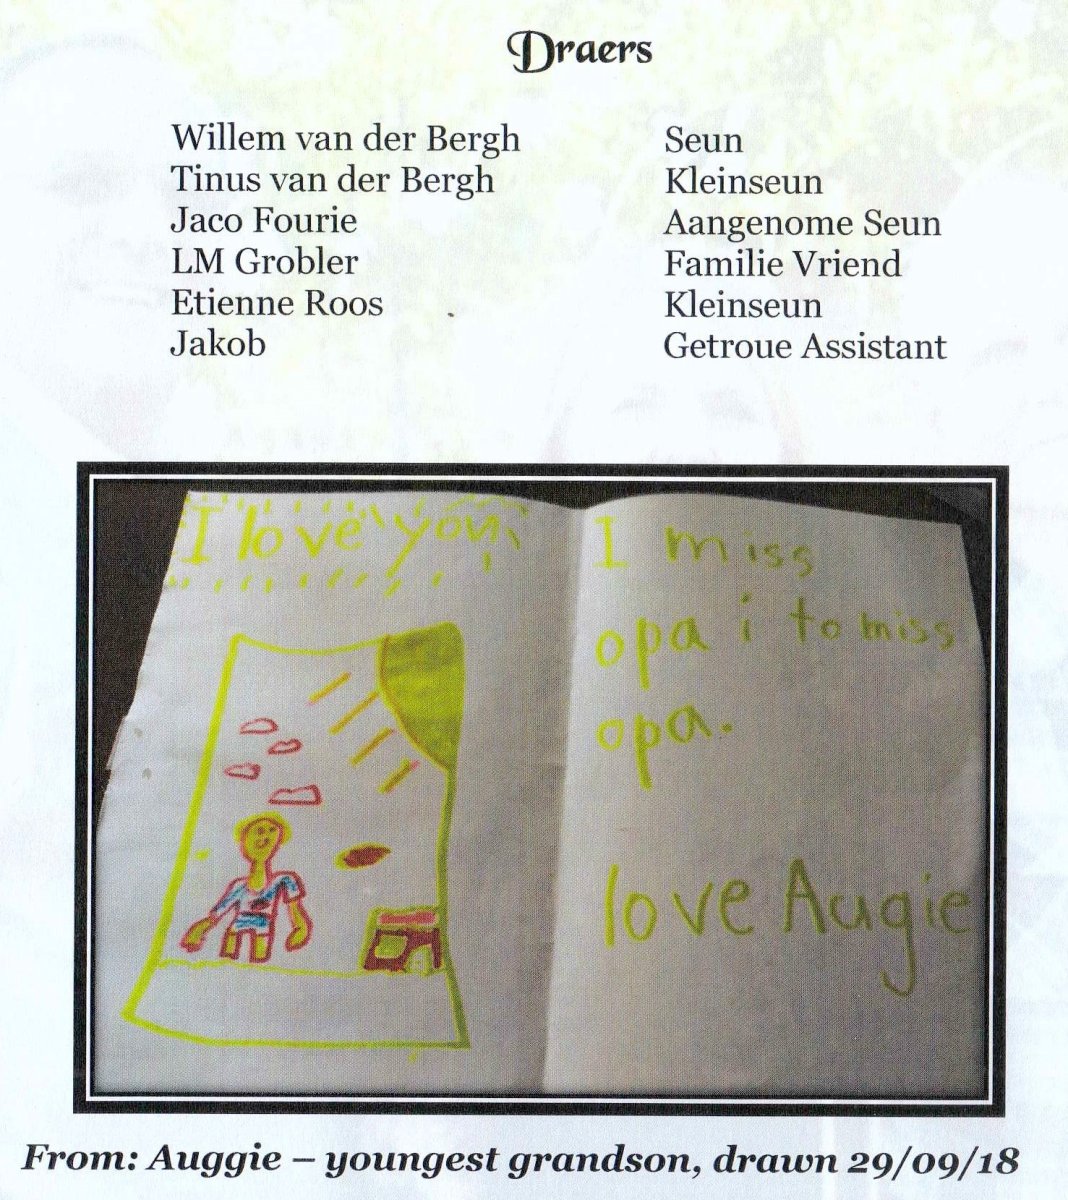 Draers
Willem van der Bergh Seun
Tinus van der Bergh Kleinseun
Jaco Fourie Aangenome Seun
LM Grobler Familie Vriend
Etienne Roos Kleinseun
Jakob Getroue Assistant
I love you
I miss
opa i to miss
opa.
love Augie
From: Auggie – youngest grandson, drawn 29/09/18